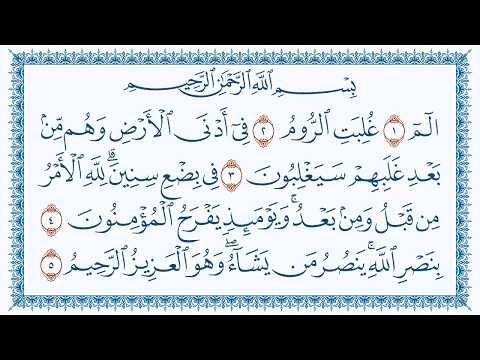 بِسْمِ ٱللَّهِ ٱلرَّحْمَٰنِ ٱلرَّحِيمِ
الٓمٓ ١ غُلِبَتِ ٱلرُّومُ ٢ فِىٓ أَدْنَى ٱلْأَرْضِ وَهُم مِّنۢ
بَعْدِ غَلَبِهِمْ سَيَغْلِبُونَ ٣ فِى بِضْعِ سِنِينَ ۗ لِلَّهِ ٱلْأَمْرُ
مِن قَبْلُ وَمِنۢ بَعْدُ ۚ وَيَوْمَئِذٍ يَفْرَحُ ٱلْمُؤْمِنُونَ ٤
بِنَصْرِ ٱللَّهِ ۚ يَنصُرُ مَن يَشَآءُ ۖ وَهُوَ ٱلْعَزِيزُ ٱلرَّحِيمُ ٥